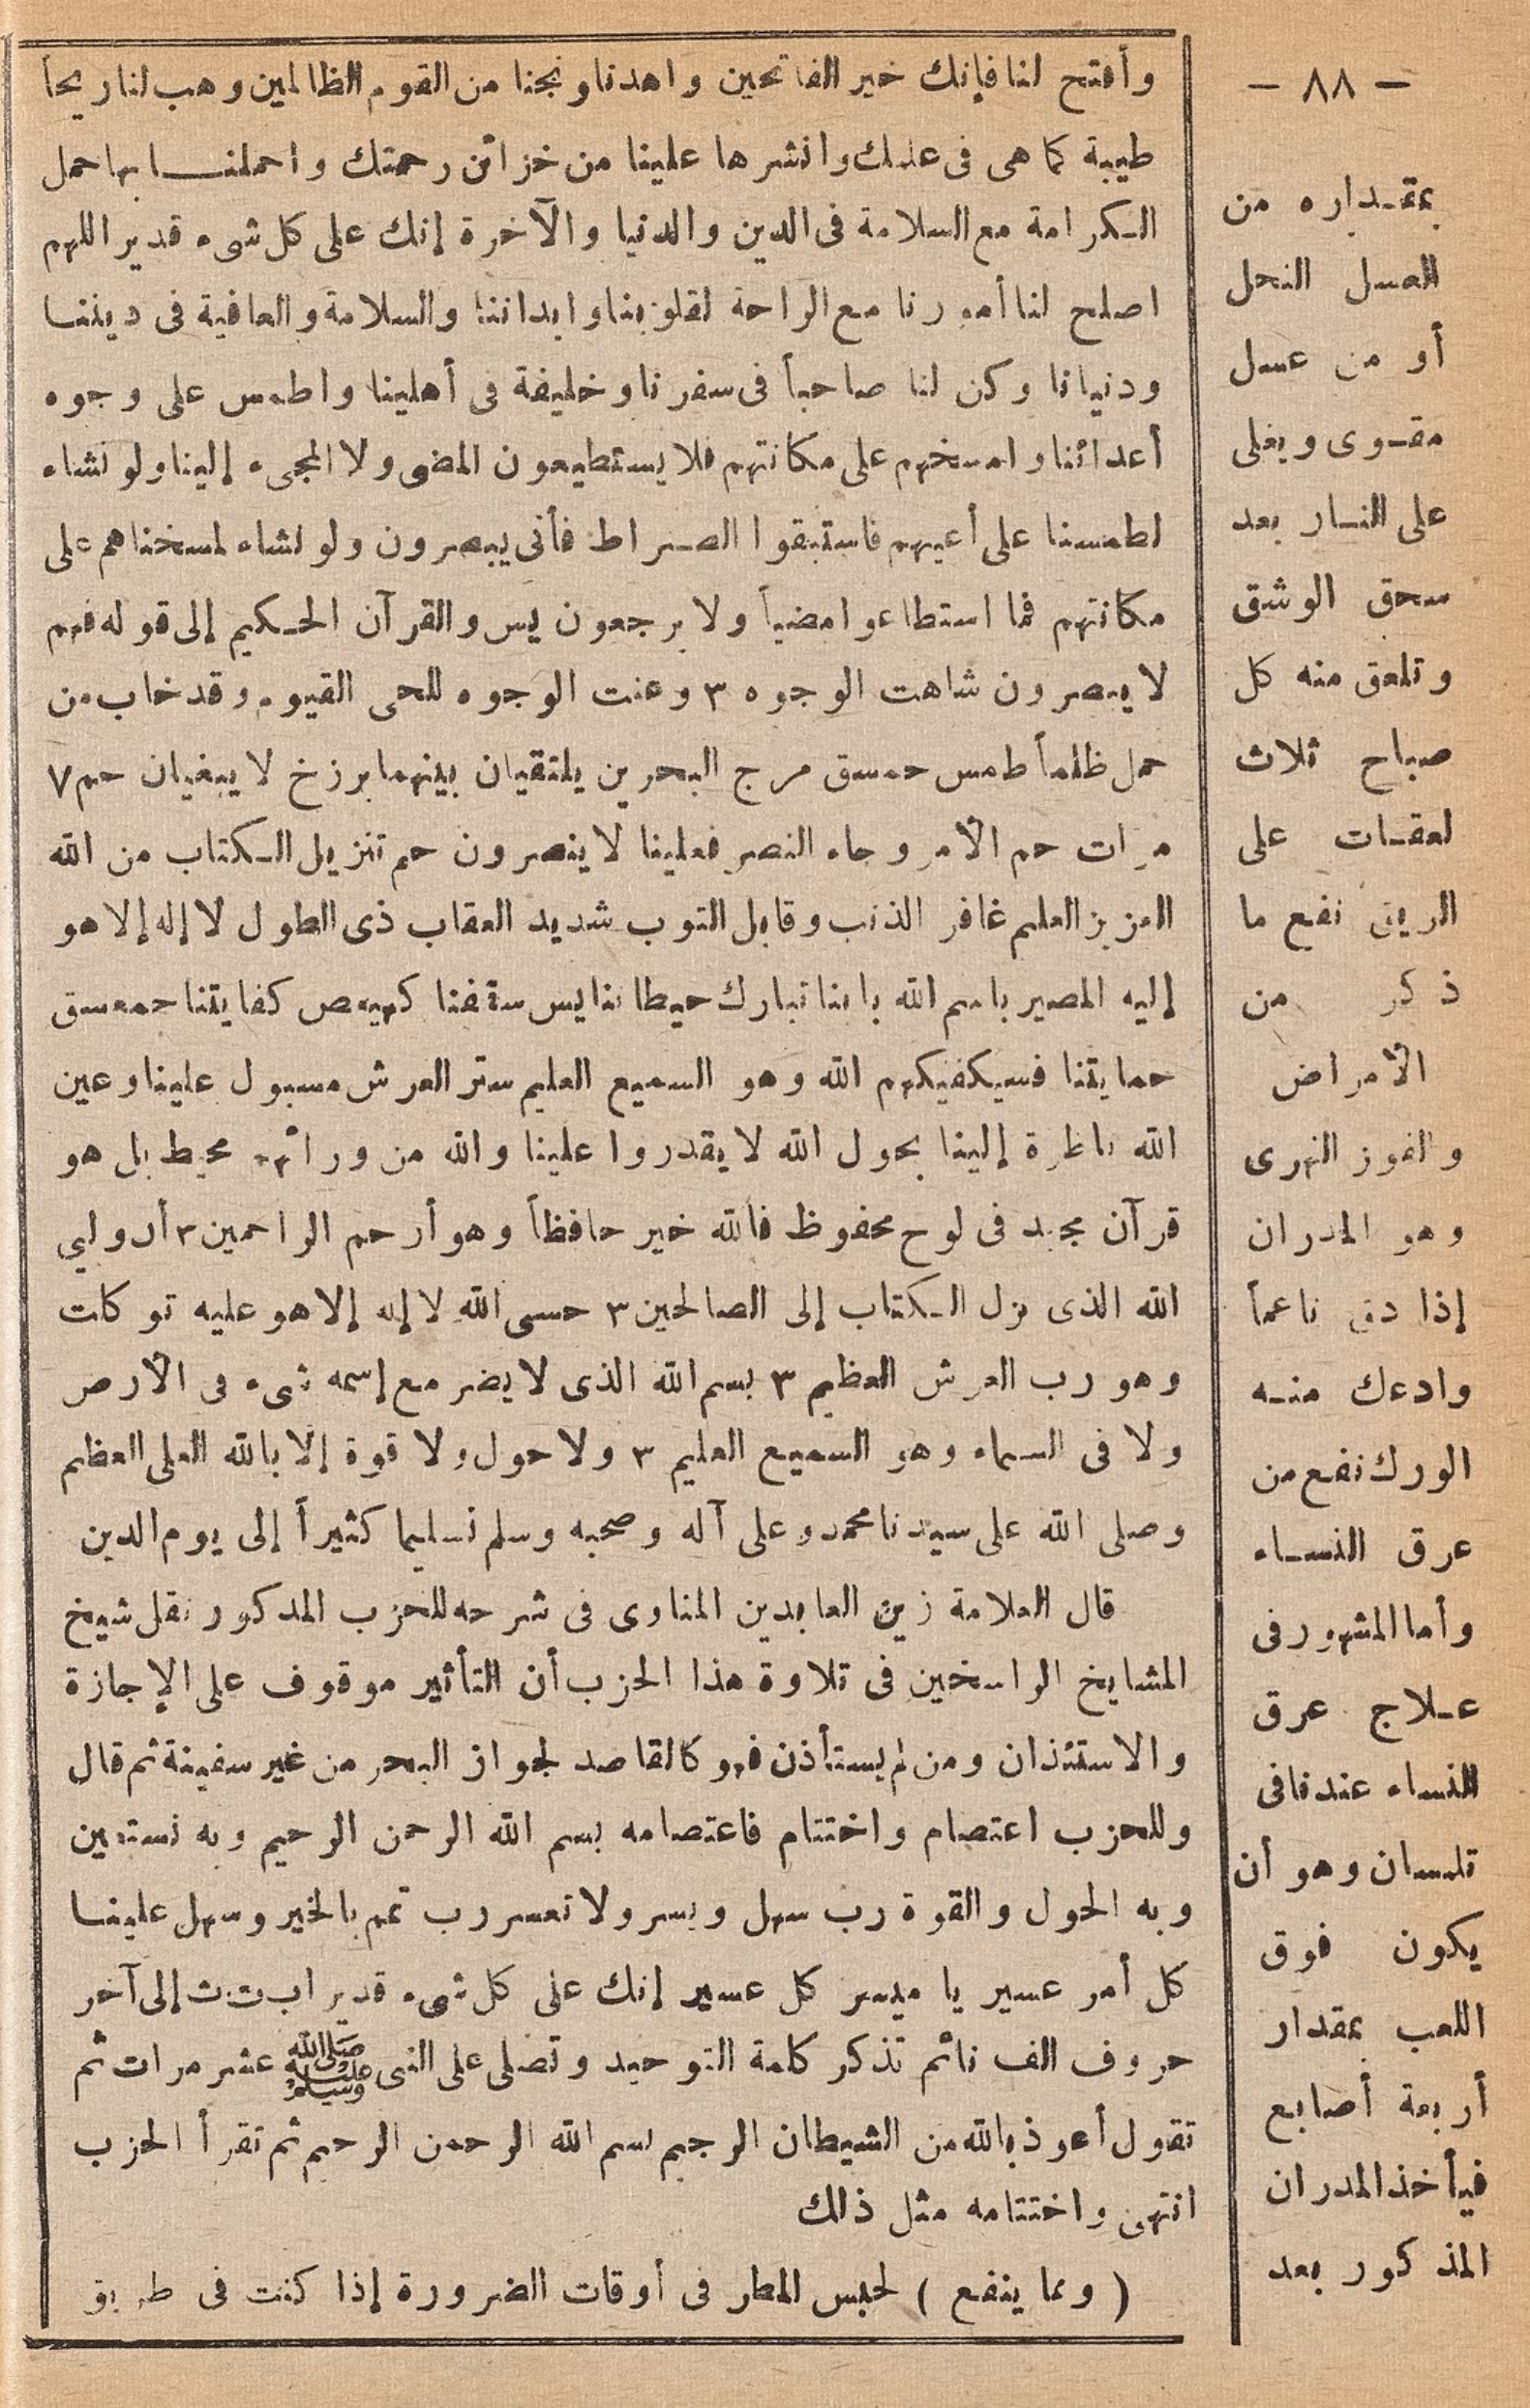 وأفتح لنا فإنك خير الفاتحين واهدنا ونجنا من القوم الظالمين وهب لنا ريحاً
طيبة كما هى فى علمك وانشرها علينا من خزائن رحمتك واحملنا بها حمل
الكرامة مع السلامة فى الدين والدنيا والآخرة إنك على كل شىء قدير اللهم
اصلح لنا أمورنا مع الراحة لقلوبنا وابداننا والسلامة والعافية فى ديننا
ودنيانا وكن لنا صاحباً فى سفرنا وخليفة فى أهلينا واطمس على وجوه
أعدائنا وامسخهم على مكانتهم فلا يستطيعون المضى ولا المجىء إلينا ولو نشاء
لطمسنا على أعينهم فاستبقوا الصراط فأنى يبصرون ولو نشاء لمسخناهم على
مكانتهم فما استطاعوا مضياً ولا يرجعون يس والقرآن الحكيم إلى قوله فهم
لا يبصرون شاهت الوجوه ٣ وعنت الوجوه للحى القيوم وقد خاب من
حمل ظلماً طمس حمسق مرج البحرين يلتقيان بينهما برزخ لا يبغيان حم ٧
مرات حم الأمر وجاء النصر فعلينا لا ينصرون حم تنزيل الكتاب من الله
العزيز العليم غافر الذنب وقابل التوب شديد العقاب ذى الطول لا إله إلا هو
إليه المصير باسم الله بابنا تبارك حيطاننا يس سقفنا كهيعص كفايتنا حمعسق
حمايتنا فسيكفيكهم الله وهو السميع العليم ستر العرش مسبول علينا وعين
الله ناظرة إلينا بحول الله لا يقدروا علينا والله من ورائهم محيط بل هو
قرآن مجيد فى لوح محفوظ فالله خير حافظاً وهو أرحم الراحمين ٣ أن وليي
الله الذى نزل الكتاب إلى الصالحين ٣ حسبى الله لا إله إلا هو عليه توكلت
وهو رب العرش العظيم ٣ بسم الله الذى لا يضر مع إسمه شىء فى الأرض
ولا فى السماء وهو السميع العليم ٣ ولا حول ولا قوة إلا بالله العلى العظيم
وصلى الله على سيدنا محمد وعلى آله وصحبه وسلم تسليما كثيراً إلى يوم الدين
قال العلامة زين العابدين المناوى فى شرحه للحزب المذكور نقل شيخ
المشايخ الراسخين فى تلاوة هذا الحزب أن التأثير موقوف على الإجازة
والاستئذان ومن لم يستأذن فهو كالقاصد لجواز البحر من غير سفينة ثم قال
وللحزب اعتصام واختتام فاعتصامه بسم الله الرحمن الرحيم وبه نستعين
وبه الحول والقوة رب سهل ويسر ولا تعسر رب تمم بالخير وسهل علينا
كل أمر عسير يا ميسر كل عسير إنك على كل شىء قدير اب ت ث إلى آخر
حروف الف نائم تذكر كلمة التوحيد وتصلى على النبى ﷺ عشر مرات ثم
تقول أعوذ بالله من الشيطان الرجيم بسم الله الرحمن الرحيم ثم تقرأ الحزب
انتهى واختتامه مثل ذلك
( ومما ينفع ) لحبس المطر فى أوقات الضرورة إذا كنت فى طريق
— ٨٨ —
بمقداره من
العسل النحل
أو من عسل
مقوى ويغلى
على النار بعد
سحق الوشق
وتلعق منه كل
صباح ثلاث
لعقات على
الريق نفع ما
ذكر من
الأمراض
والفوز النهرى
وهو المدران
إذا دق ناعماً
وادعك منه
الورك نفع من
عرق النساء
وأما المشهور فى
علاج عرق
النساء عندنا فى
تلمسان وهو أن
يكون فوق
اللعب بمقدار
أربعة أصابع
فيأخذ المدران
المذكور بعد